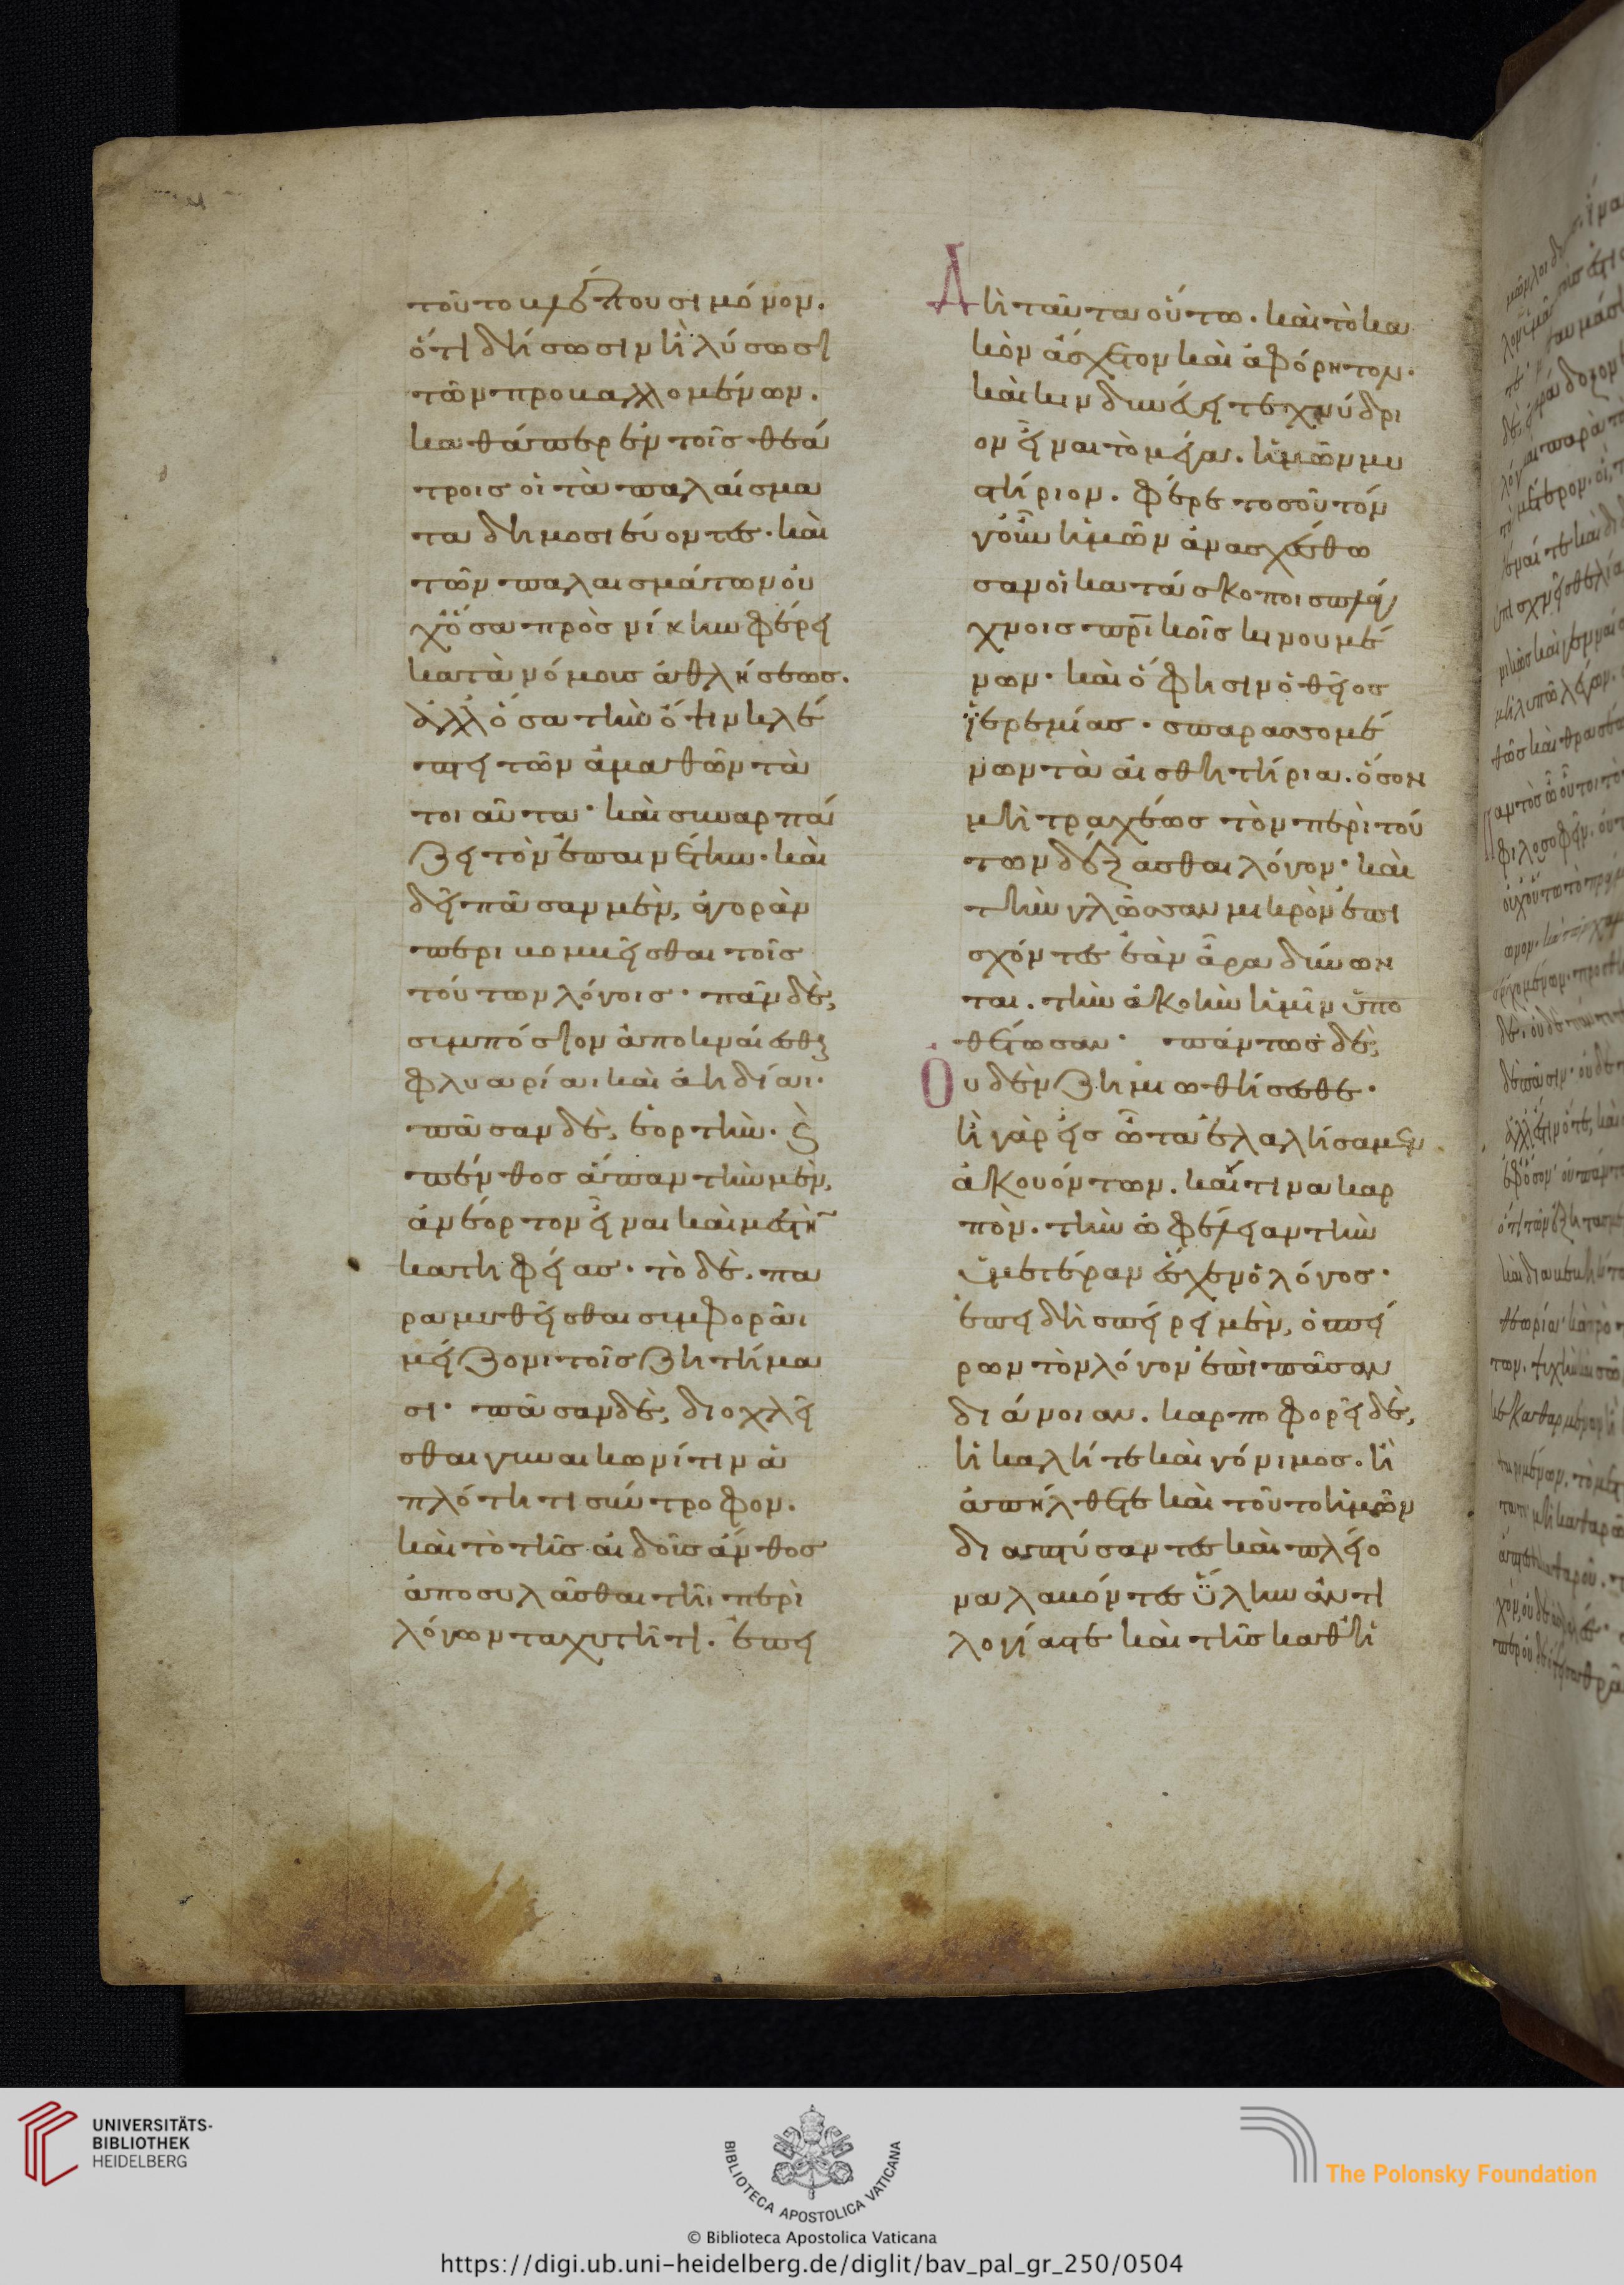 τοῦτο βλέπουσι μόνον.
ὅτι δήσωσιν ἢ λύσωσι
τῶν προβαλλομένων.
καθάπερ ἐν τοῖς θεά
τροις οἱ τὰ παλαίσμα
τα δημοσιεύοντες. καὶ
τῶν παλαισμάτων οὐ
χ ὅσα πρὸς νίκην φέρει
κατὰ νόμους ἀθλήσεως.
ἀλλ ὅσα τὴν ὄψιν κλέ
πτει τῶν ἀμαθῶν τὰ
τοιαῦτα· καὶ συναρπά
ζει τὸν ἐπαινέτην. καὶ
δεῖ πᾶσαν μὲν, ἀγορὰν
περιβομβεῖσθαι τοῖς
τούτων λόγοις· πᾶν δὲ,
συμπόσιον ἀποκναίεσθαι
φλυαρίαι καὶ ἀηδίαι.
πᾶσαν δὲ, ἑορτὴν. καὶ
πένθος ἅπαν τὴν μὲν,
ἀνέορτον εἶναι καὶ μεστὴν
κατηφείας. τὸ δὲ. πα
ραμυθεῖσθαι συμφορᾶι
μείζονι τοῖς ζητήμα
σι· πᾶσαν δὲ, διοχλεῖ
σθαι γυναικωνίτιν ἁ
πλότητι σύντροφον.
καὶ τὸ τῆς αἰδοῦς ἄνθος
ἀποσυλᾶσθαι τῆι περὶ
λόγων ταχυτῆτι. ἐπει
Δὴ ταῦτα οὕτω. καὶ τὸ κα
κὸν ἄσχετον καὶ ἀφόρητον.
καὶ κινδυνεύει τεχνύδρι
ον εἶναι τὸ μέγα. ἡμῶν μυ
στήριον. φέρε τοσοῦτόν
γοῦν ἡμῶν ἀνασχέσθω
σαν οἱ κατάσκοποι σπλάγ
χνοις πρικοῖς κινουμέ
νων· καὶ ὅ φησιν ὁ θεῖος
ἱερεμίας. σπαρασσομέ
νων τὰ αἰσθητήρια. ὅσον
μὴ τραχέως τὸν περὶ τού
των δέξασθαι λόγον· καὶ
τὴν γλῶσσαν μικρὸν ἐπι
σχόντες ἐὰν ἆρα δύνων
ται. τὴν ἀκοὴν ἡμῖν ὑπο
θέτωσαν· πάντως δὲ,
Οὐδὲν ζημιωθήσεσθε.
ἢ γὰρ εἰς ὦτα ἐλαλήσαμεν
ἀκουόντων. καί τινα καρ
πὸν. τὴν ὠφέλειαν τὴν
ὑμετέραν ἔσχεν ὁ λόγος.
ἐπειδὴ σπείρει μὲν, ὁ σπεί
ρων τὸν λόγον ἐπὶ πᾶσαν
διάνοιαν. καρποφορεῖ δὲ,
ἡ καλή τε καὶ γόνιμος. ἢ
ἀπήλθετε καὶ τοῦτο ἡμῶν
διαπτύσαντες καὶ πλείο
να λαβόντες ὕλην ἀντι
λογίας τε καὶ τῆς καθ ἡ
UNIVERSITÄTS-
BIBLIOTHEK
HEIDELBERG
BIBLIOTECA APOSTOLICA VATICANA
The Polonsky Foundation
© Biblioteca Apostolica Vaticana
https://digi.ub.uni-heidelberg.de/diglit/bav_pal_gr_250/0504